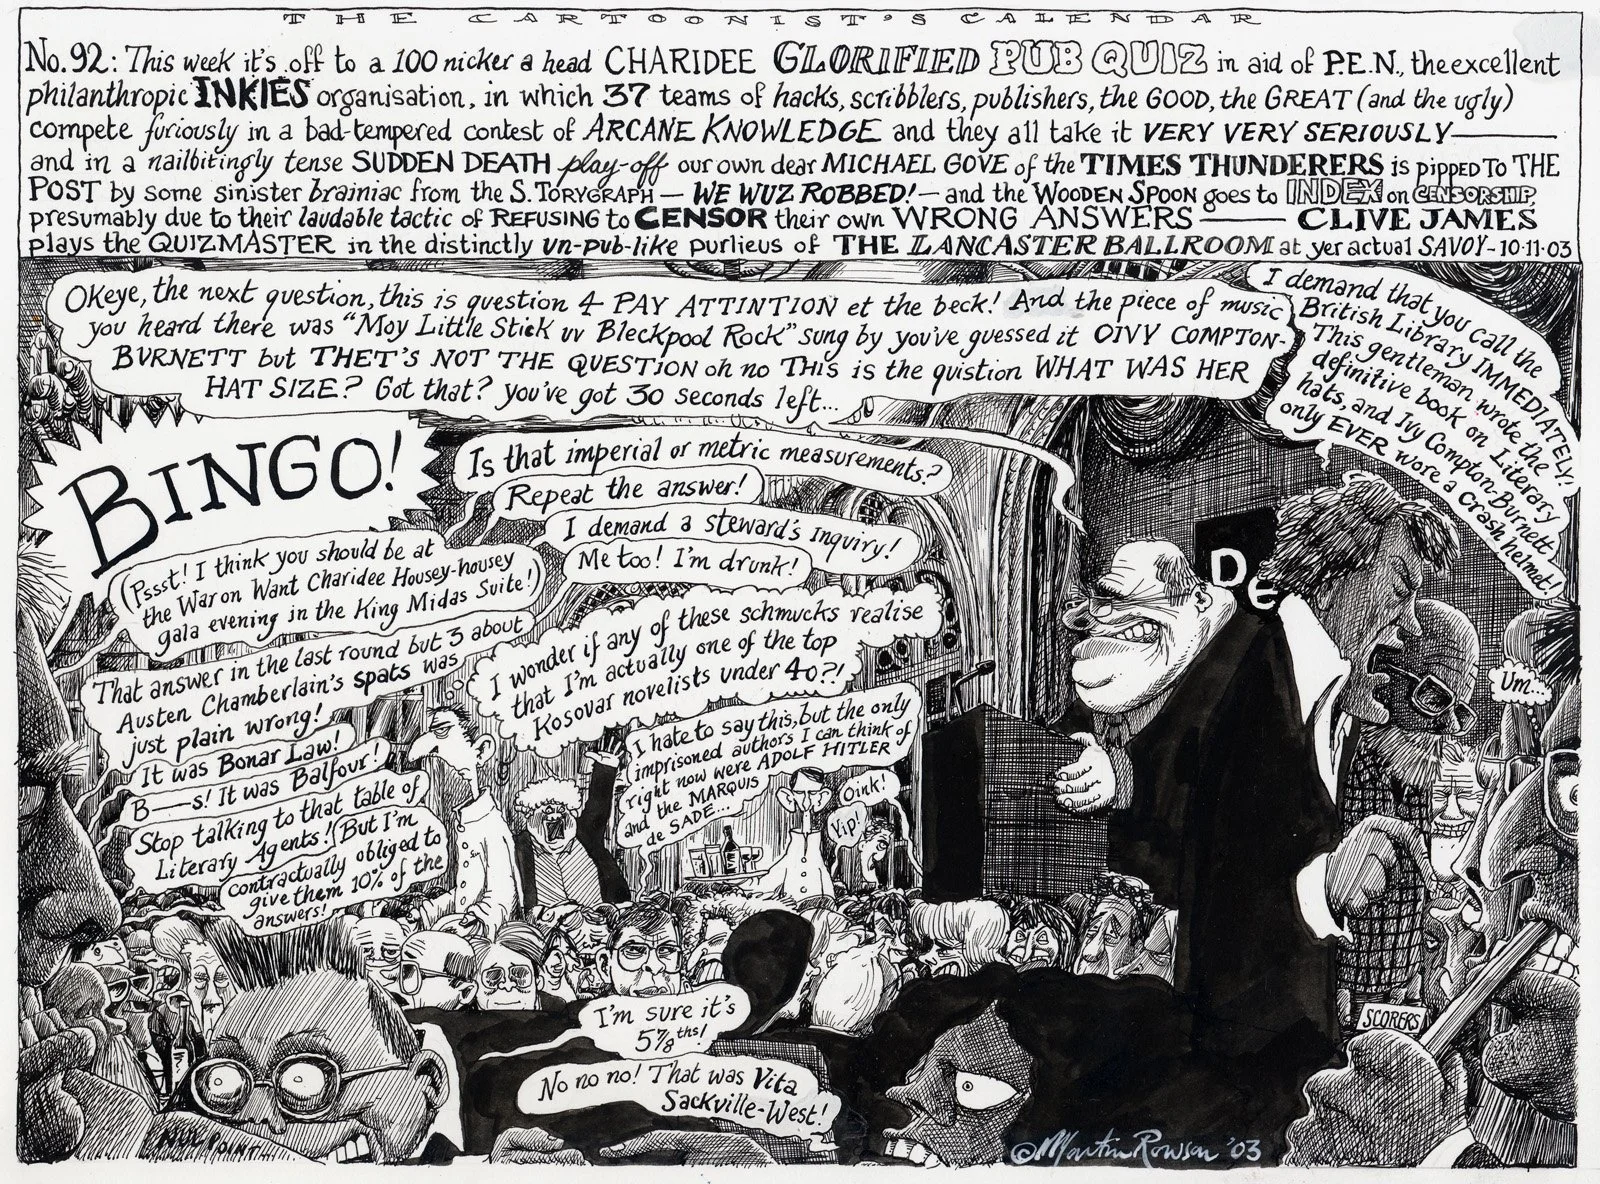 THE CARTOONIST'S CALENDAR
No. 92: This week it's off to a 100 nicker a head CHARIDEE GLORIFIED PUB QUIZ in aid of P.E.N., the excellent
philanthropic INKIES organisation, in which 37 teams of hacks, scribblers, publishers, the GOOD, the GREAT (and the ugly)
compete furiously in a bad-tempered contest of ARCANE KNOWLEDGE and they all take it VERY VERY SERIOUSLY——
and in a nailbitingly tense SUDDEN DEATH play-off our own dear MICHAEL GOVE of the TIMES THUNDERERS is pipped TO THE
POST by some sinister brainiac from the S. TORYGRAPH — WE WUZ ROBBED! — and the WOODEN SPOON goes to INDEX on CENSORSHIP,
presumably due to their laudable tactic of REFUSING to CENSOR their own WRONG ANSWERS —— CLIVE JAMES
plays the QUIZMASTER in the distinctly un-pub-like purlieus of THE LANCASTER BALLROOM at yer actual SAVOY - 10·11·03
OKeye, the next question, this is question 4 PAY ATTINTION et the beck! And the piece of music
you heard there was "Moy Little Stick uv Bleckpool Rock" sung by you've guessed it OIVY COMPTON-
BURNETT but THET'S NOT THE QUESTION oh no THIS is the quistion WHAT WAS HER
HAT SIZE? Got that? you've got 30 seconds left...
I demand that you call the
British Library IMMEDIATELY!
This gentleman wrote the
definitive book on Literary
hats, and Ivy Compton-Burnett
only EVER wore a crash helmet!
BINGO!
Is that imperial or metric measurements?
Repeat the answer!
I demand a steward's inquiry!
Me too! I'm drunk!
(Pssst! I think you should be at
the War on Want Charidee Housey-housey
gala evening in the King Midas Suite!)
That answer in the last round but 3 about
Austen Chamberlain's spats was
just plain wrong!
It was Bonar Law!
B——s! It was Balfour!
Stop talking to that table of
Literary Agents!
(But I'm
contractually obliged to
give them 10% of the
answers!
I wonder if any of these schmucks realise
that I'm actually one of the top
Kosovar novelists under 40?!
I hate to say this, but the only
imprisoned authors I can think of
right now were ADOLF HITLER
and the MARQUIS
de SADE...
Oink!
Yip!
DE
Um...
SCORERS
I'm sure it's
5⅞ths!
No no no! That was Vita
Sackville-West!
NUL POINT
© Martin Rowson '03